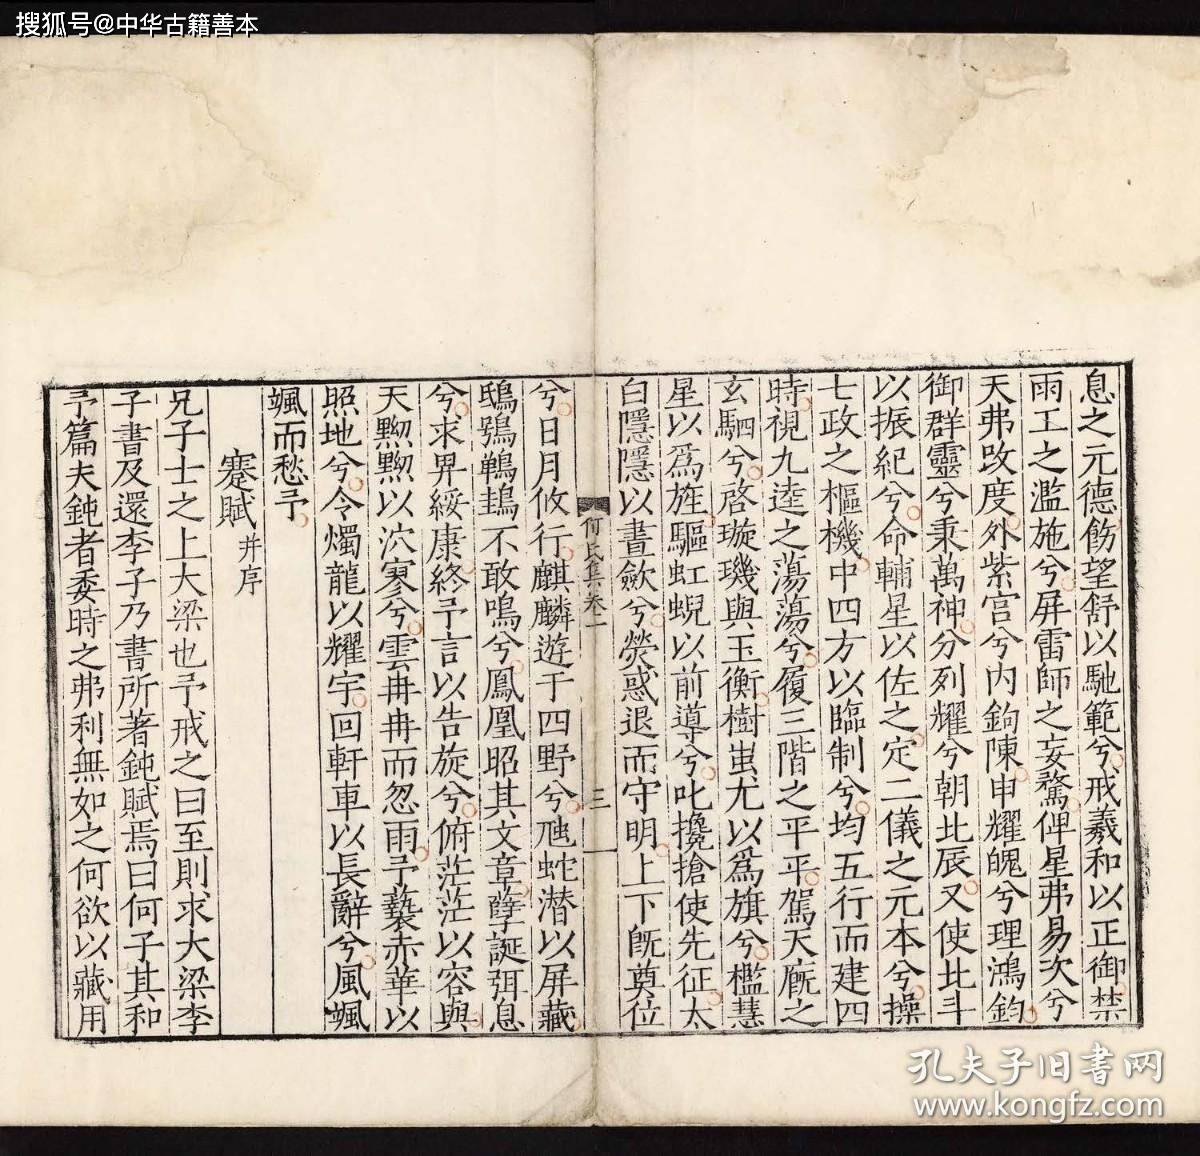 搜狐号@中华古籍善本
息之元德飭望舒以馳範兮戒羲和以正御禁
雨工之濫施兮屏雷師之妄驁俾星弗易次兮
天弗改度外紫宫兮内鉤陳申耀魄兮理鴻鈞
御群靈兮秉萬神分列耀兮朝北辰又使北斗
以振紀兮命輔星以佐之定二儀之元本兮操
七政之樞機中四方以臨制兮均五行而建四
時視九逵之蕩蕩兮履三階之平平駕天廐之
玄駟兮啓璇璣與玉衡樹蚩尤以爲旗兮檻慧
星以爲旌驅虹蜺以前導兮叱攙搶使先征太
白隱隱以晝歛兮熒惑退而守明上下旣奠位
何氏集卷一
三
兮日月攸行麒麟遊于四野兮虺蛇潜以屏藏
鴟鴞鵂鶹不敢鳴兮鳳凰昭其文章孽誕弭息
兮求畀綏康終予言以告旋兮俯茫茫以容與
天黝黝以泬寥兮雲冉冉而忽雨予蓺赤華以
照地兮令燭龍以耀宇回軒車以長辭兮風颯
颯而愁予
蹇賦并序
兄子士之上大梁也予戒之曰至則求大梁李
子書及還李子乃書所著鈍賦焉曰何子其和
予篇夫鈍者委時之弗利無如之何欲以藏用
孔夫子旧书网
www.kongfz.com